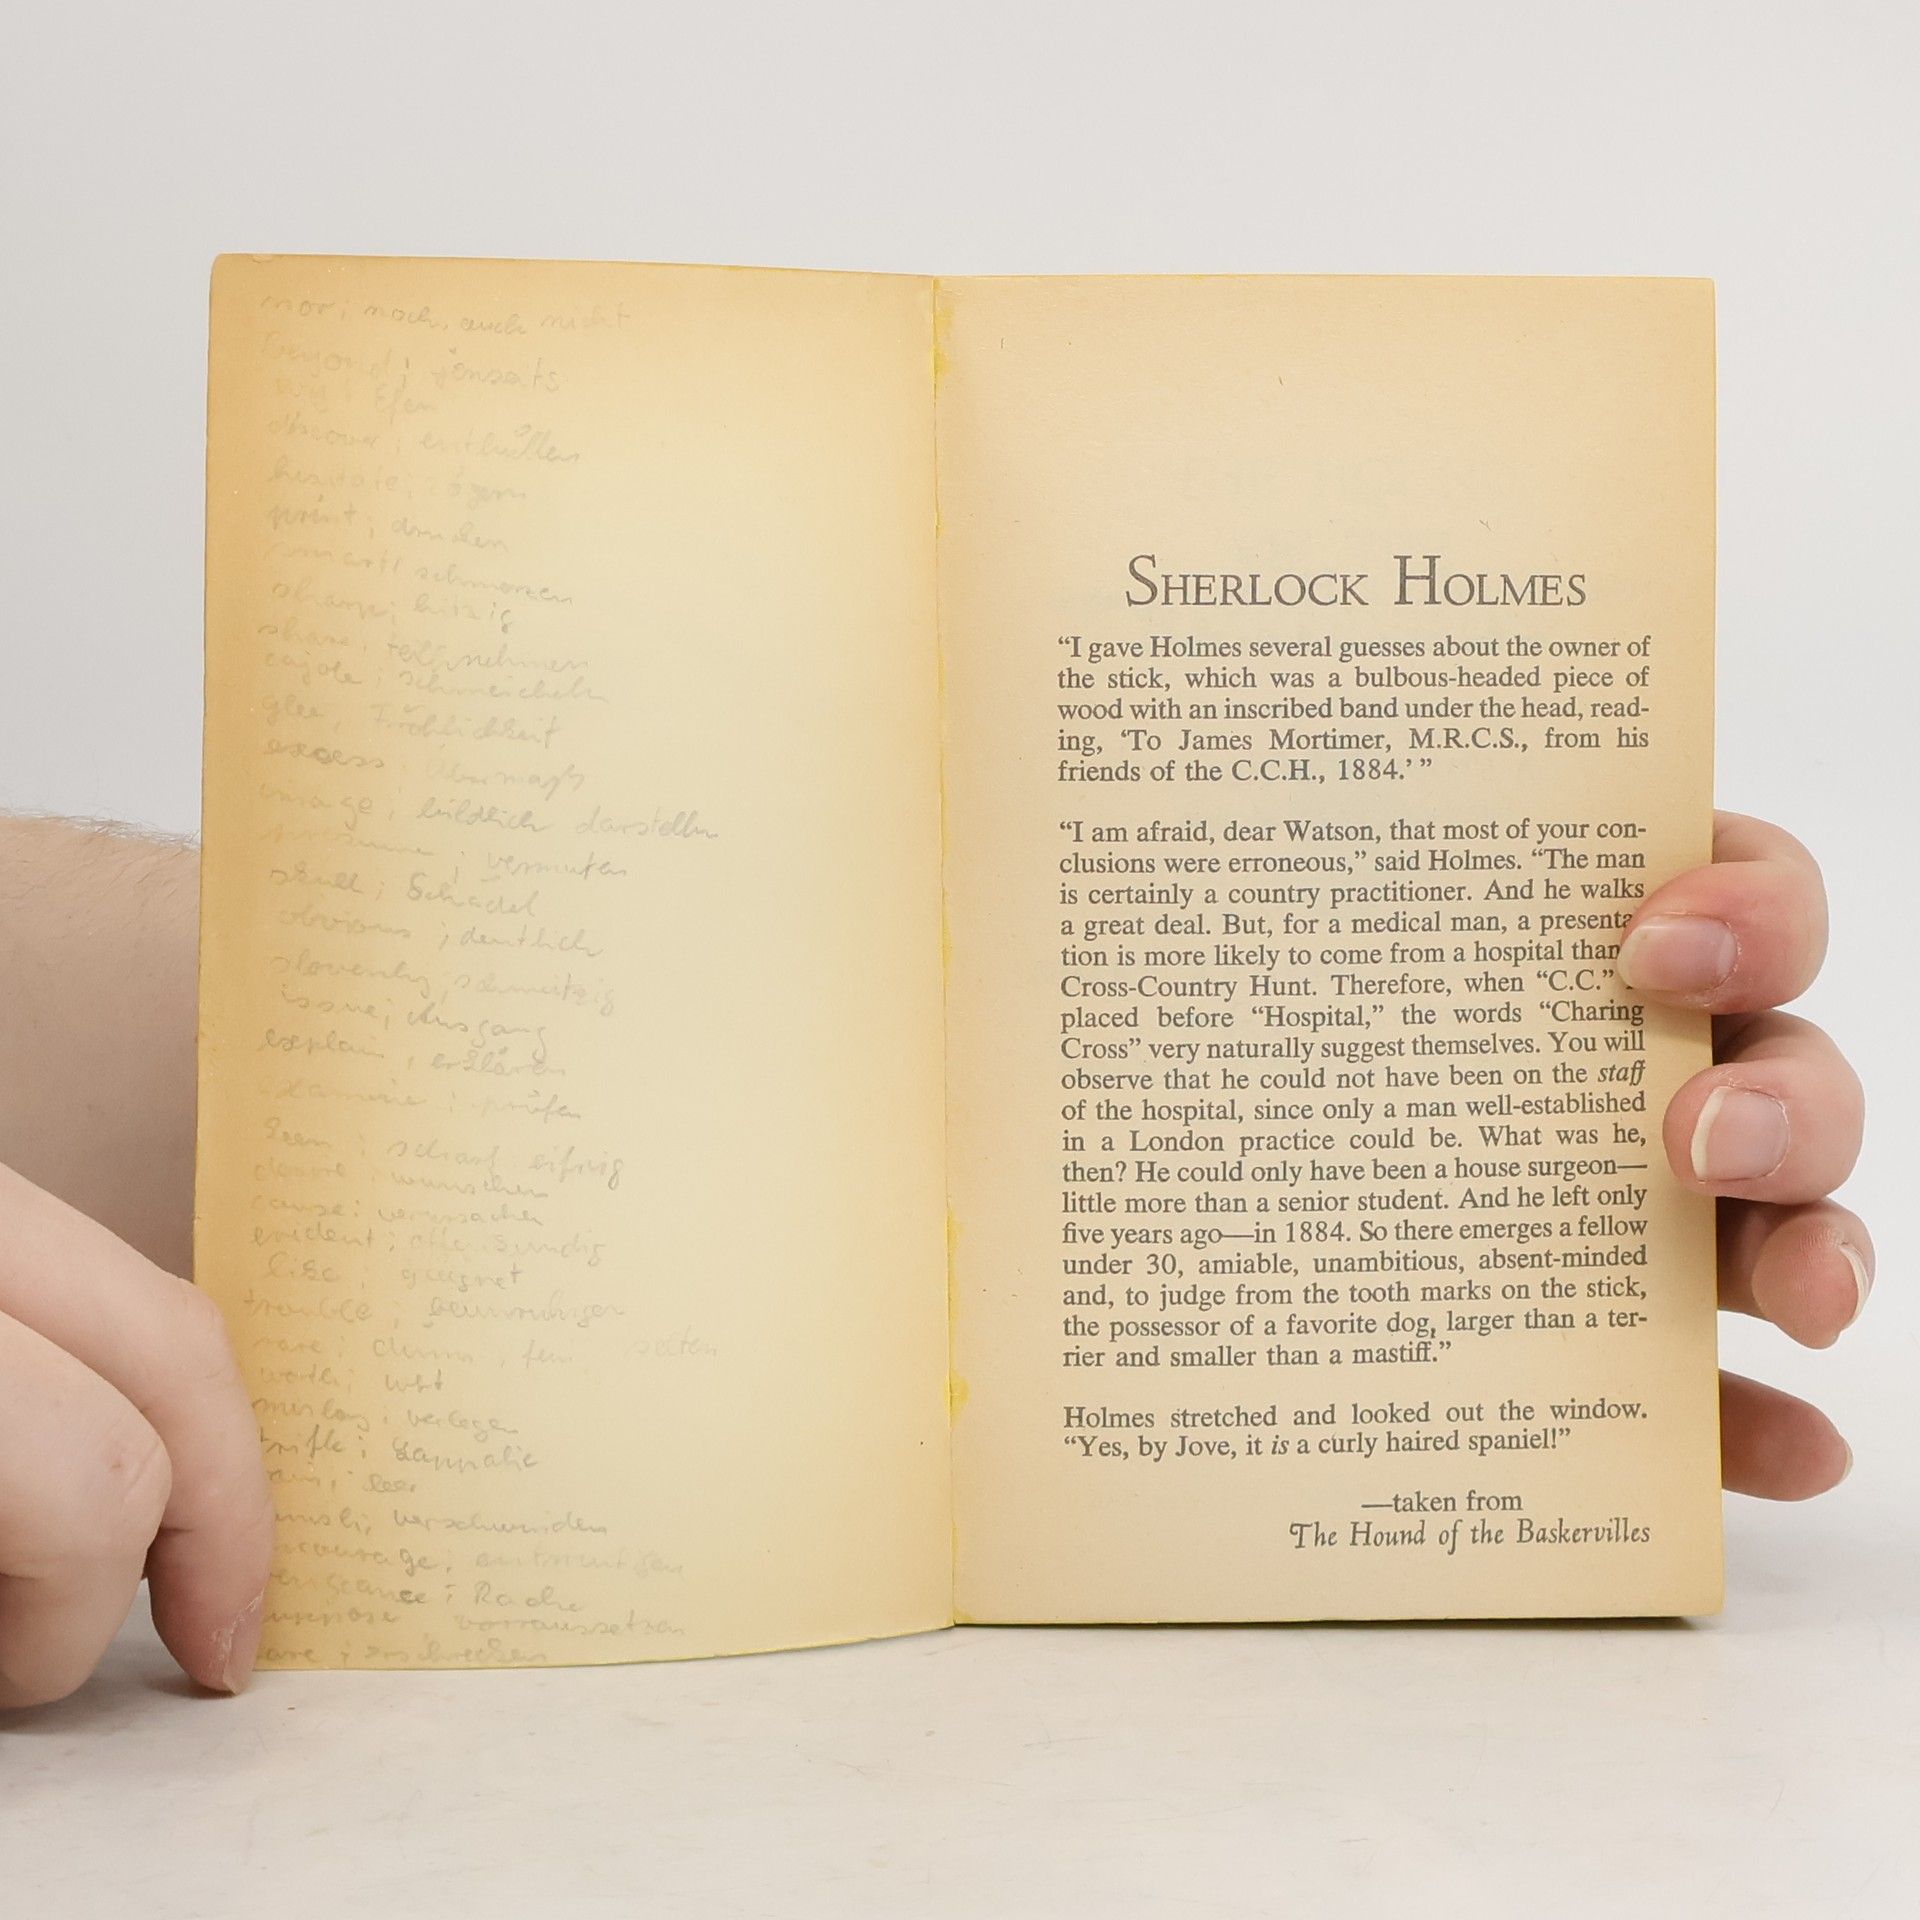 nor; noch, auch nicht
beyond; jenseits
discover; enthüllen
hesitate; zögern
print; drucken
smart; schmerzen
sharp; hitzig
share, teilnehmen
cajole; schmeicheln
glee, Fröhlichkeit
excess: Übermaß
image; bildlich darstellen
presume; vermuten
skull; Schädel
obvious; deutlich
slovenly, schmutzig
issue; Ausgang
explain, erklären
examine; prüfen
keen; scharf eifrig
desire; wünschen
cause: verursachen
evident; offenkundig
like, geeignet
trouble; beunruhigen
rare; dünn, fein selten
worth; wert
mislay; verlegen
trifle; Lappalie
leer
verschwinden
entmutigen
Rache
vorraussetzen
erschrecken
SHERLOCK HOLMES
“I gave Holmes several guesses about the owner of
the stick, which was a bulbous-headed piece of
wood with an inscribed band under the head, read-
ing, ‘To James Mortimer, M.R.C.S., from his
friends of the C.C.H., 1884.’ ”
“I am afraid, dear Watson, that most of your con-
clusions were erroneous,” said Holmes. “The man
is certainly a country practitioner. And he walks
a great deal. But, for a medical man, a presenta
tion is more likely to come from a hospital than
Cross-Country Hunt. Therefore, when “C.C.”
placed before “Hospital,” the words “Charing
Cross” very naturally suggest themselves. You will
observe that he could not have been on the staff
of the hospital, since only a man well-established
in a London practice could be. What was he,
then? He could only have been a house surgeon—
little more than a senior student. And he left only
five years ago—in 1884. So there emerges a fellow
under 30, amiable, unambitious, absent-minded
and, to judge from the tooth marks on the stick,
the possessor of a favorite dog, larger than a ter-
rier and smaller than a mastiff.”
Holmes stretched and looked out the window.
“Yes, by Jove, it is a curly haired spaniel!”
—taken from
The Hound of the Baskervilles